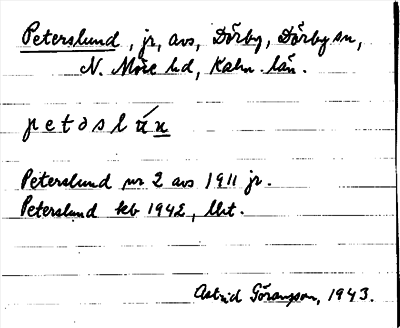 Peterslund, jr, avs, Dörby, Dörby sn,
N. Möre hd, Kalm. län.
petəslún
Peterslund nr 2 avs 1911 jr.
Peterslund kb 1942, lht.
Astrid Göransson, 1943.